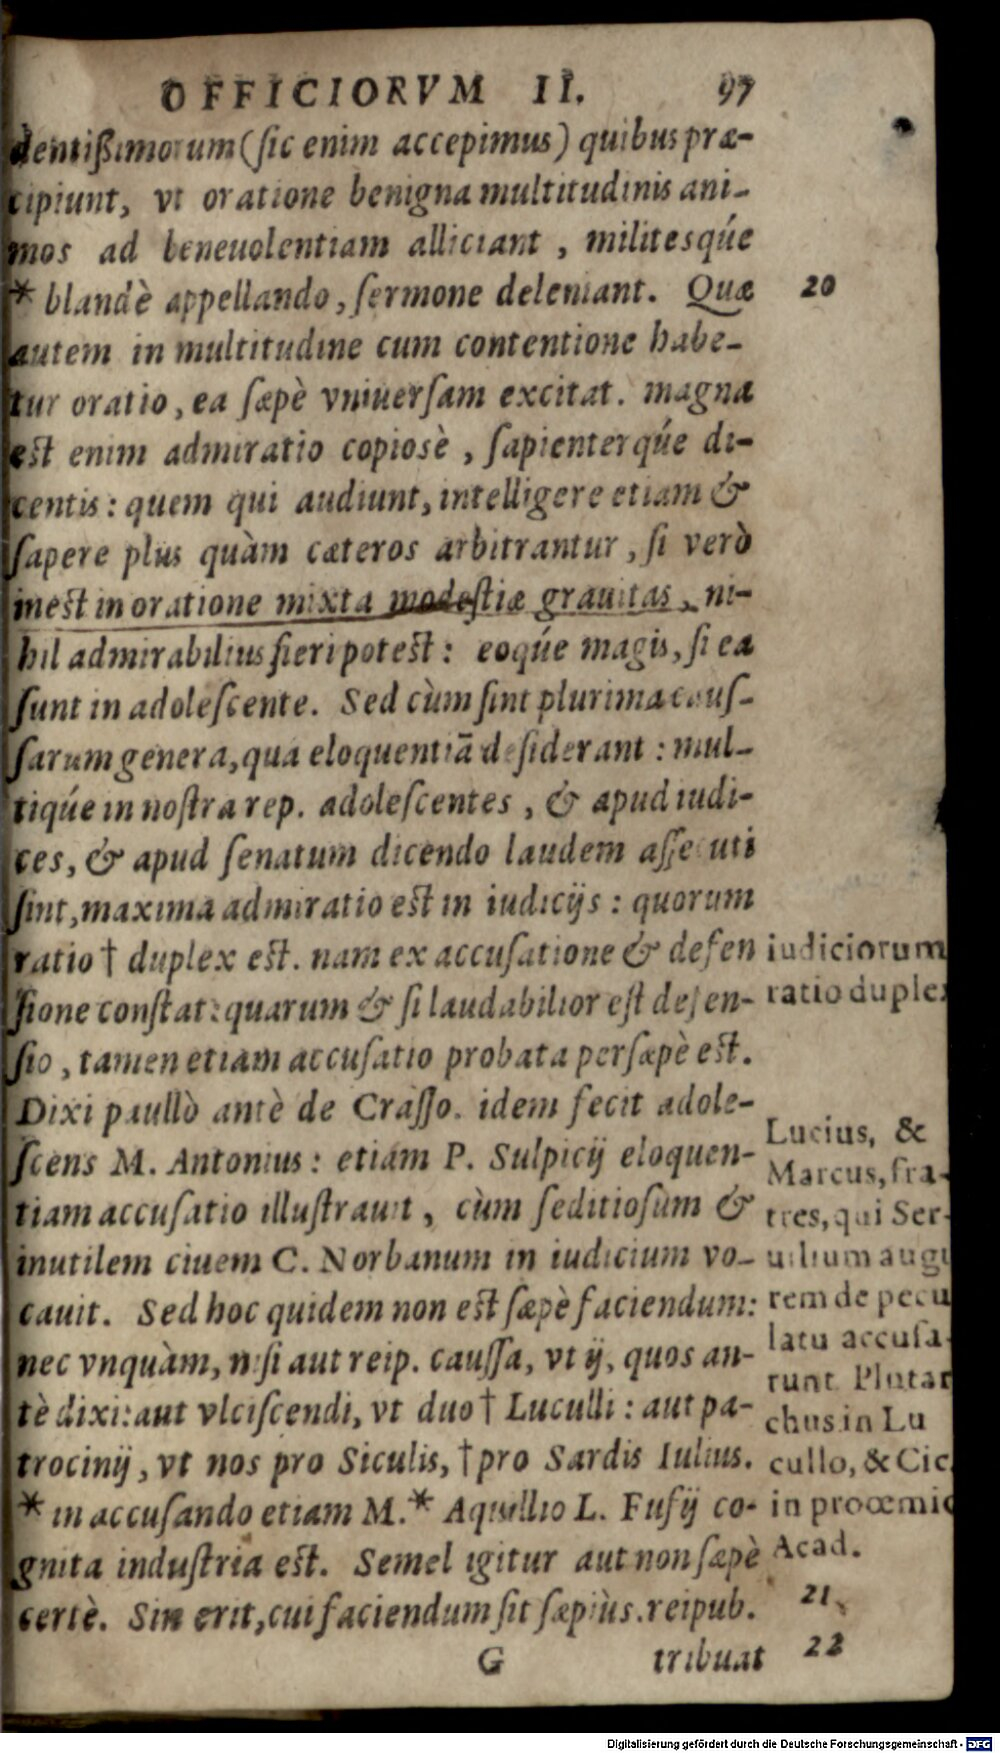 OFFICIORVM II. 97
dentißimorum (sic enim accepimus) quibus præ-
cipiunt, vt oratione benigna multitudinis ani-
mos ad beneuolentiam alliciant, militesqúe
* blandè appellando, sermone deleniant. Quæ
20
autem in multitudine cum contentione habe-
tur oratio, ea sæpè vniuersam excitat. magna
est enim admiratio copiosè, sapienterqúe di-
centis: quem qui audiunt, intelligere etiam &
sapere plus quàm cæteros arbitrantur, si verò
inest in oratione mixta modestiæ grauitas, ni-
hil admirabilius fieri potest: eoqúe magis, si ea
sunt in adolescente. Sed cùm sint plurima caus-
sarum genera, qua eloquentiā desiderant: mul-
tiqúe in nostra rep. adolescentes, & apud iudi-
ces, & apud senatum dicendo laudem assecuti
sint, maxima admiratio est in iudicijs: quorum
ratio † duplex est. nam ex accusatione & defen
sione constat: quarum & si laudabilior est defen-
sio, tamen etiam accusatio probata persæpè est.
Dixi paullò antè de Crasso. idem fecit adole-
scens M. Antonius: etiam P. Sulpicij eloquen-
tiam accusatio illustrauit, cùm seditiosum &
inutilem ciuem C. Norbanum in iudicium vo-
cauit. Sed hoc quidem non est sæpè faciendum:
nec vnquàm, nisi aut reip. caussa, vt ij, quos an-
tè dixi: aut vlciscendi, vt duo † Luculli: aut pa-
trocinij, vt nos pro Siculis, † pro Sardis Iulius.
* in accusando etiam M. * Aquillio L. Fusij co-
gnita industria est. Semel igitur aut non sæpè
certè. Sin erit, cui faciendum sit sæpiùs. reipub.
G tribuat
iudiciorum
ratio duplex
Lucius, &
Marcus, fra-
tres, qui Ser-
uilium augu
rem de pecu
latu accusa-
runt Plutar
chus in Lu
cullo, & Cic.
in proœmio
Acad.
21
22
Digitalisierung gefördert durch die Deutsche Forschungsgemeinschaft - DFG